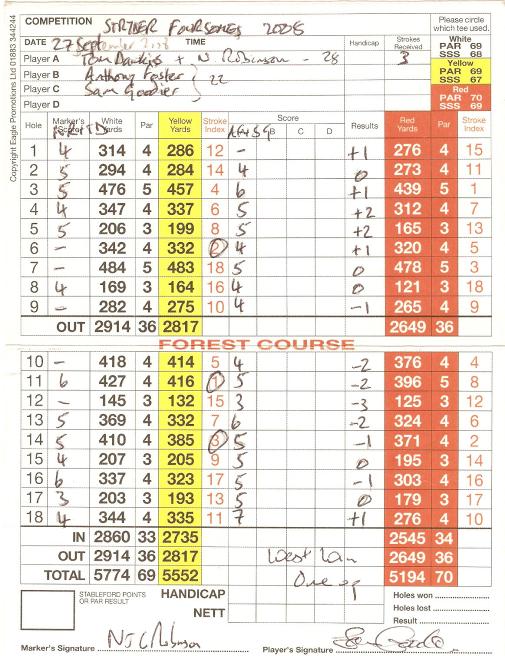 COMPETITION STRINER FOURSOMES 2008
Please circle which tee used.
DATE 27 Sept TIME Handicap Strokes Received
White PAR 69 SSS 68
Player A Tom Dawkins + N. Robinson - 28 3
Yellow PAR 69 SSS 67
Player B Anthony Foster
Player C Sam Goodier } 22
Red PAR 70 SSS 69
Player D
Copyright Eagle Promotions Ltd 01883 344244
Hole Marker's Score White Yards Par Yellow Yards Stroke Index Score B C D Results Red Yards Par Stroke Index
NR/TD AF/SG
1 4 314 4 286 12 - +1 276 4 15
2 5 294 4 284 14 4 0 273 4 11
3 5 476 5 457 4 6 +1 439 5 1
4 4 347 4 337 6 5 +2 312 4 7
5 5 206 3 199 8 5 +2 165 3 13
6 - 342 4 332 2 4 +1 320 4 5
7 - 484 5 483 18 5 0 478 5 3
8 4 169 3 164 16 4 0 121 3 18
9 - 282 4 275 10 4 -1 265 4 9
OUT 2914 36 2817 2649 36
FOREST COURSE
10 - 418 4 414 5 4 -2 376 4 4
11 6 427 4 416 1 5 -2 396 5 8
12 - 145 3 132 15 3 -3 125 3 12
13 5 369 4 332 7 6 -2 324 4 6
14 5 410 4 385 3 5 -1 371 4 2
15 4 207 3 205 9 5 0 195 3 14
16 6 337 4 323 17 5 -1 303 4 16
17 3 203 3 193 13 5 0 179 3 17
18 4 344 4 335 11 7 +1 276 4 10
IN 2860 33 2735 2545 34
OUT 2914 36 2817 West Win 2649 36
TOTAL 5774 69 5552 One up 5194 70
STABLEFORD POINTS OR PAR RESULT
HANDICAP
NETT
Holes won
Holes lost
Result
Marker's Signature N J C Robinson Player's Signature